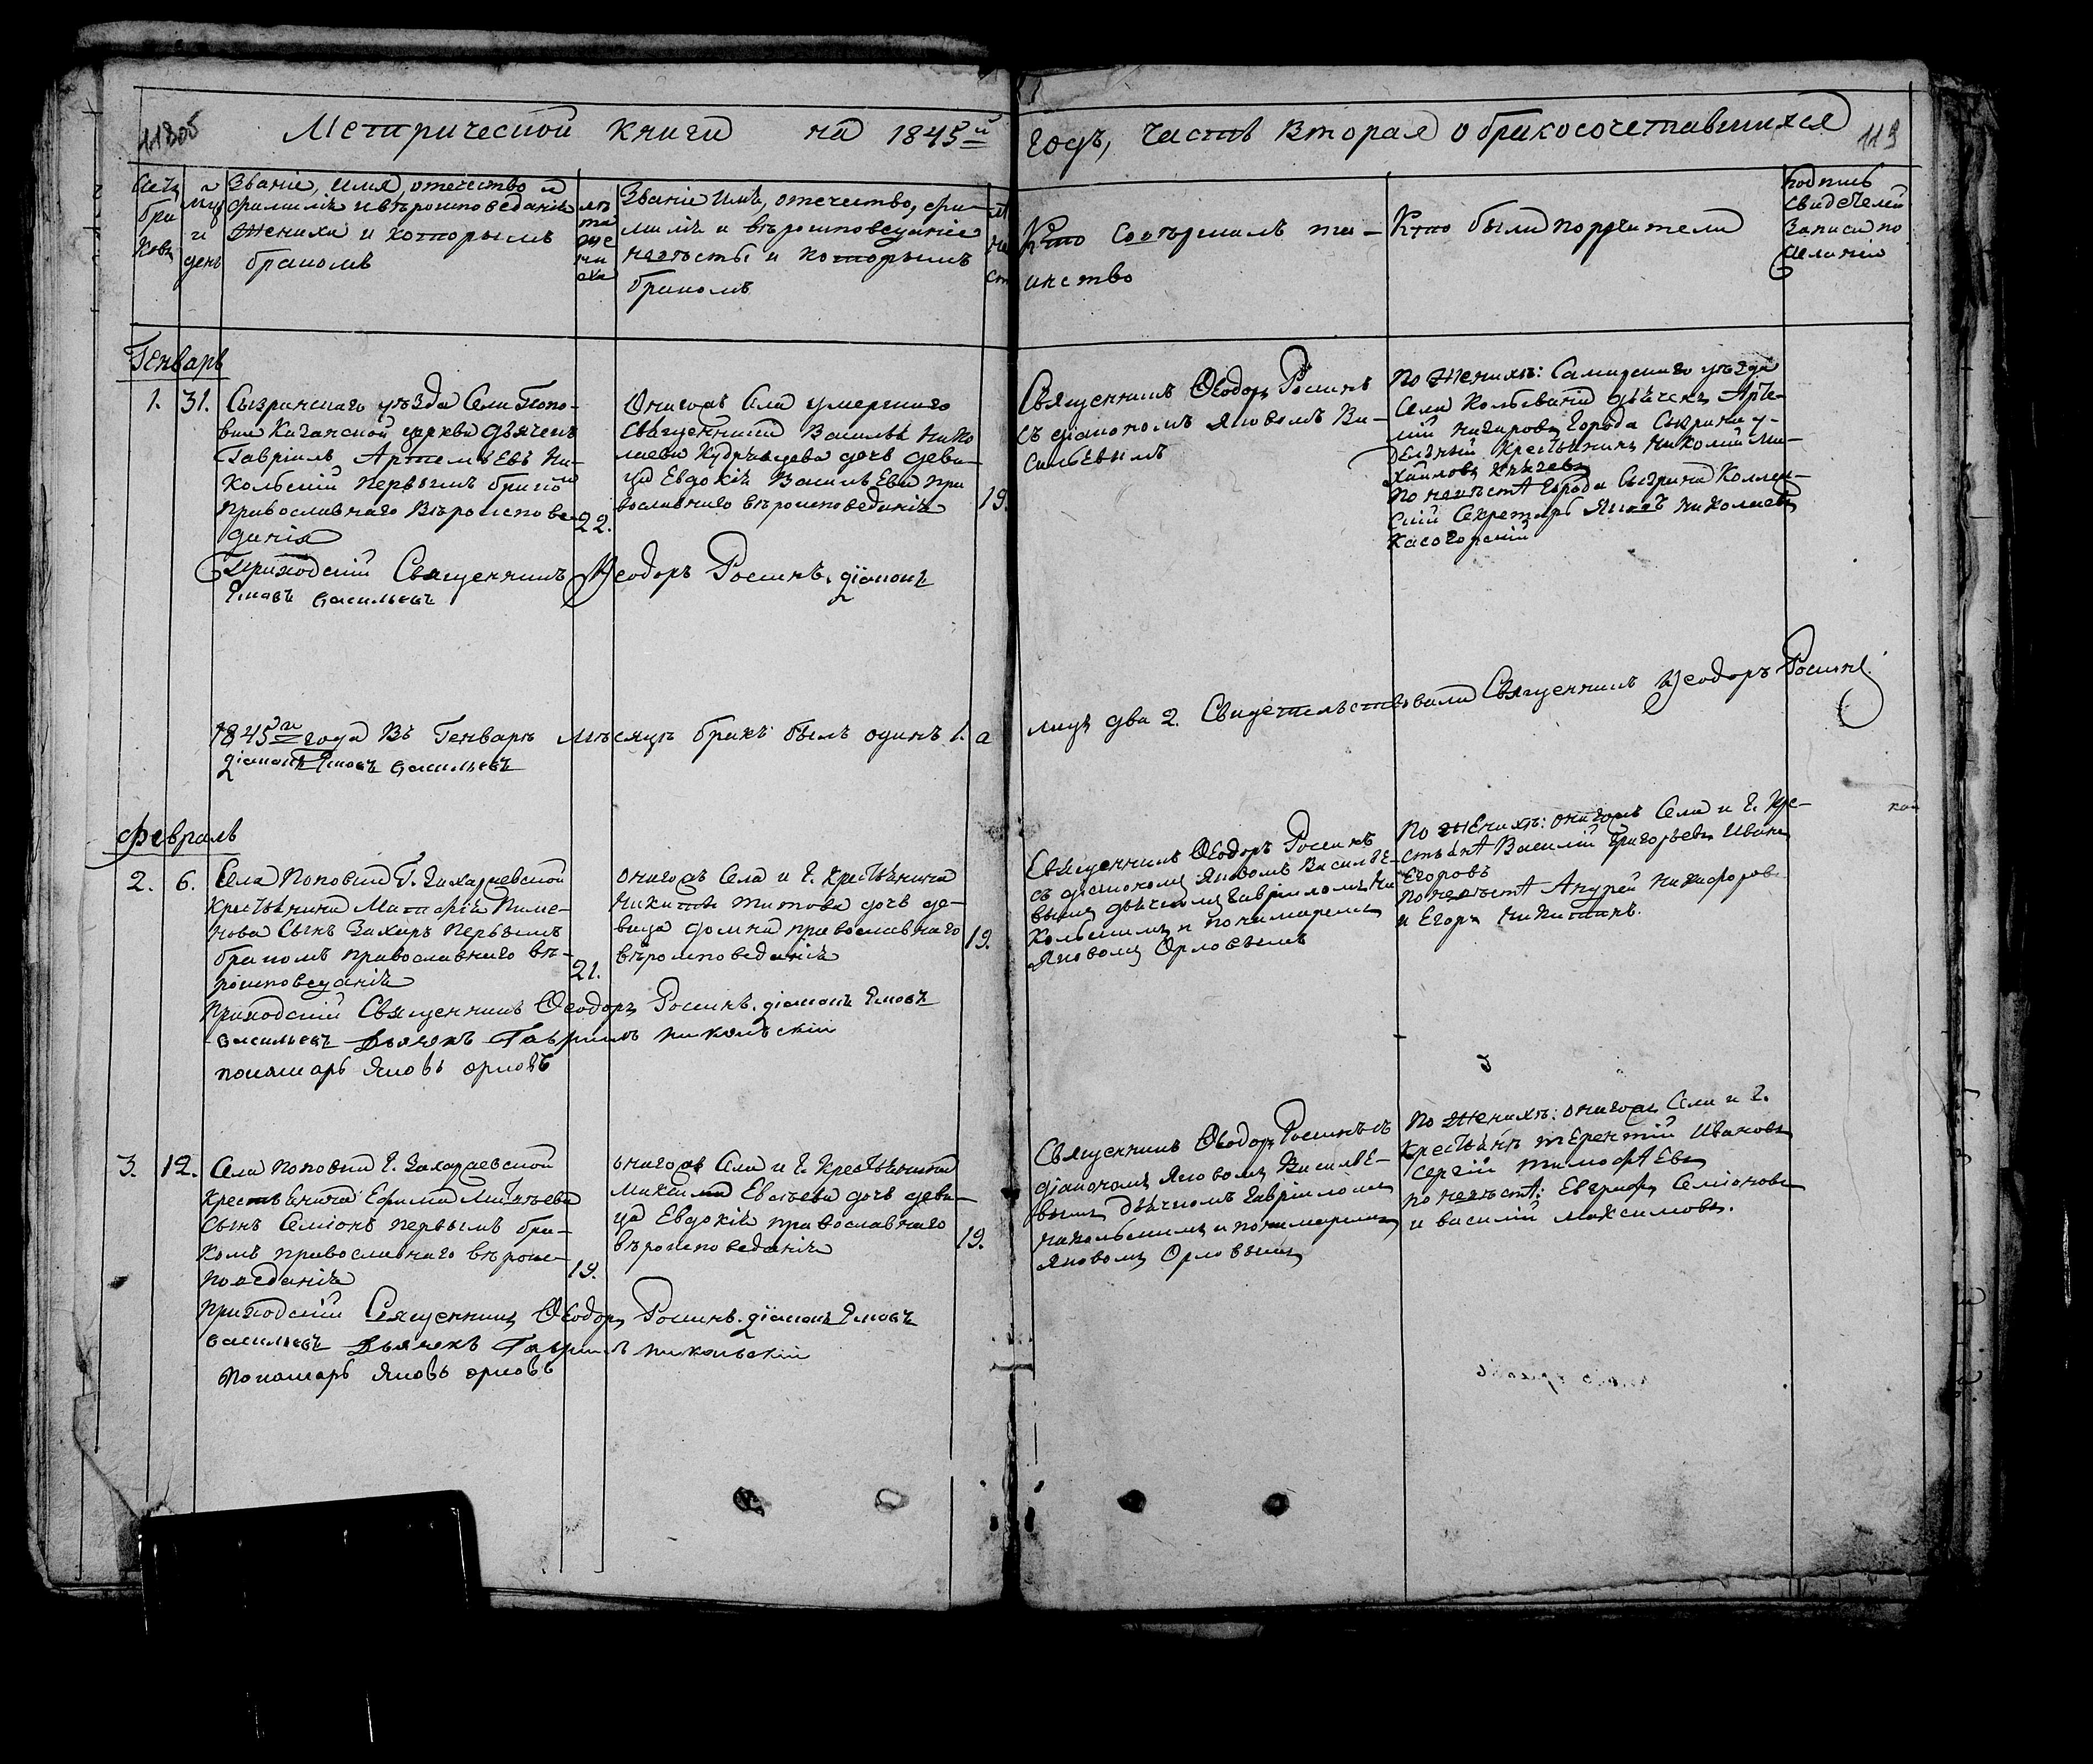 Метрической книги на 1845й
годъ, часть вторая о бракосочетавшихся
119
Званіе, имя, отечество и
фамилія и вѣроисповеданіе
жениха и которымъ
бракомъ
лѣ
та
же
ни
ха
Званіе имя, отечество, фа-
милія и вѣроисповеданіе
невѣсты и которымъ
бракомъ
Кто совершилъ та-
инство
Кто были поручители
подпись
свидетелей
записи по
желанію
Генварь
1. 31. Сызранскаго уѣзда Села Попо-
вки Казанской церкви дьячекъ
Гавріилъ Артемьевъ Ни-
кольскій первымъ бракомъ
православнаго вѣроиспове
данія
22.
Онагожъ Села умершаго
Священника Василья Нико
лаева Кудрявцева дочь деви-
ца Евдокія Васильева пра
вославнаго вѣроисповеданія
19.
Священникъ Ѳеодоръ Росинъ
съ діакономъ Яковомъ Ва-
сильевымъ
По женихѣ: Самарскаго уѣзда
Села дьячекъ Арте-
мій города Сызрана у-
дельный крестьянинъ Николай Ми-
хайловъ
по невѣстѣ города Сызрана Коллеж-
скій Секретарь Яковъ Николаевъ
Касогорскій
Приходскій Священникъ Ѳеодоръ Росинъ. діаконъ
Яковъ Васильевъ
1845го года Въ Генварѣ мѣсяцѣ бракъ былъ одинъ 1. а
лицъ два 2. Свидетельствовали Священникъ Ѳеодоръ Росинъ
діаконъ Яковъ Васильевъ
Февраль
2. 6. Села Поповки Г. Захарьевской
крестьянина Матфія Пиме-
нова сынъ Захаръ первымъ
бракомъ православнаго вѣ-
роисповеданія
21.
онагожъ Села и Г. крестьянина
Никиты Титова дочь де-
вица Домна православнаго
вѣроисповеданія
19.
Священникъ Ѳеодоръ Росинъ
съ діакономъ Яковомъ Василье-
вымъ дьячкомъ Гавріиломъ Ни
кольскимъ и пономаремъ
Яковомъ Орловымъ
По женихѣ: онагожъ Села и Г. кре-
стьянѣ Василій Григорьевъ Иванъ
Егоровъ
по невѣстѣ Андрей Никифоровъ
и Егоръ Никитинъ.
Приходскій Священникъ Ѳеодоръ Росинъ. діаконъ Яковъ
Васильевъ Дьячекъ Гавриилъ Никольскій
пономарь Яковъ Орловъ
3. 12. Села Поповки Г. Захарьевской
крестьянина Ефима Матвѣева
сынъ Семіонъ первымъ бра-
комъ православнаго вѣроис-
поведанія
19.
онагожъ Села и Г. крестьянина
Максима Евсѣева дочь деви-
ца Евдокія православнаго
вѣроисповеданія
19.
Священникъ Ѳеодоръ Росинъ съ
діакономъ Яковомъ Василье-
вымъ дьячкомъ Гавріиломъ
никольскимъ и пономаремъ
Яковомъ Орловымъ
По женихѣ: онагожъ Села и Г.
крестьянѣ Терентій Ивановъ
Сергій Тимофѣевъ
по невѣстѣ: Евграфъ Семіоновъ
и василій Максимовъ.
Приходскій Священникъ Ѳеодоръ Росинъ. діаконъ Яковъ
Васильевъ Дьячекъ Гавриилъ Никольскій
Пономарь Яковъ Орловъ